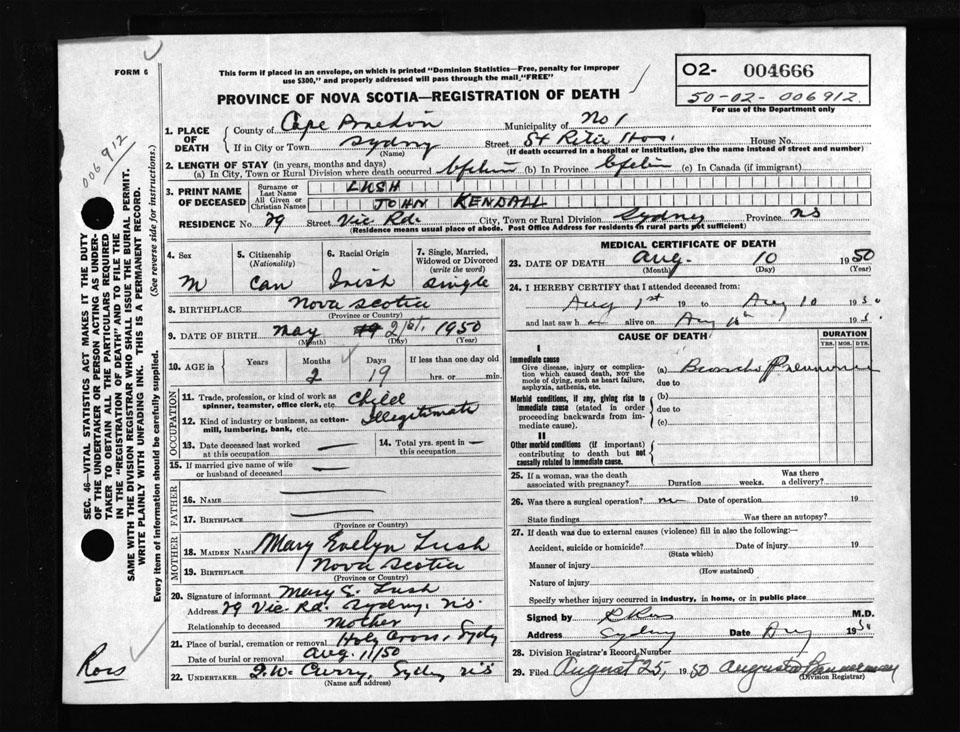 FORM 6
This form if placed in an envelope, on which is printed "Dominion Statistics—Free, penalty for improper
use $300," and properly addressed will pass through the mail "FREE"
O2- 004666
50-02-006912
For use of the Department only
PROVINCE OF NOVA SCOTIA—REGISTRATION OF DEATH
006912
SEC. 46—VITAL STATISTICS ACT MAKES IT THE DUTY
OF THE UNDERTAKER OR PERSON ACTING AS UNDER-
TAKER TO OBTAIN ALL THE PARTICULARS REQUIRED
IN THE "REGISTRATION OF DEATH" AND TO FILE THE
SAME WITH THE DIVISION REGISTRAR WHO SHALL ISSUE THE BURIAL PERMIT.
WRITE PLAINLY WITH UNFADING INK. THIS IS A PERMANENT RECORD.
Every item of information should be carefully supplied. (See reverse side for instructions.)
1. PLACE OF DEATH
County of Cape Breton Municipality of No 1
If in City or Town Sydney Street St Ritis Hos. House No.
(Name) (If death occurred in a hospital or institution, give the name instead of street and number)
2. LENGTH OF STAY (in years, months and days)
(a) In City, Town or Rural Division where death occurred (b) In Province (c) In Canada (if immigrant)
3. PRINT NAME OF DECEASED
Surname or Last Name LUSH
All Given or Christian Names JOHN KENDALL
RESIDENCE No. 79 Street Vic. Rd. City, Town or Rural Division Sydney Province NS
(Residence means usual place of abode. Post Office Address for residents in rural parts not sufficient)
4. Sex M
5. Citizenship (Nationality) Can
6. Racial Origin Irish
7. Single, Married, Widowed or Divorced (write the word) Single
8. BIRTHPLACE Nova Scotia
(Province or Country)
9. DATE OF BIRTH May 21st, 1950
(Month) (Day) (Year)
10. AGE in Years Months 2 Days 19 If less than one day old hrs. or min.
OCCUPATION
11. Trade, profession, or kind of work as spinner, teamster, office clerk, etc. Child
12. Kind of industry or business, as cotton-mill, lumbering, bank, etc. Illegitimate
13. Date deceased last worked at this occupation —
14. Total yrs. spent in this occupation —
15. If married give name of wife or husband of deceased —
FATHER
16. NAME —
17. BIRTHPLACE —
(Province or Country)
MOTHER
18. MAIDEN NAME Mary Evelyn Lush
19. BIRTHPLACE Nova Scotia
(Province or Country)
20. Signature of informant Mary E. Lush
Address 79 Vic. Rd. Sydney, N.S.
Relationship to deceased Mother
21. Place of burial, cremation or removal Holy Cross, Sydy
Date of burial or removal Aug. 11/50
22. UNDERTAKER Sydney NS
(Name and address)
Ross
MEDICAL CERTIFICATE OF DEATH
23. DATE OF DEATH Aug. 10 1950
(Month) (Day) (Year)
24. I HEREBY CERTIFY that I attended deceased from:
Aug 1st 19 to Aug 10 1950
and last saw h alive on Aug 10th 195
CAUSE OF DEATH
DURATION
YRS. MOS. DYS.
I
Immediate cause
Give disease, injury or complica-
tion which caused death, NOT the
mode of dying, such as heart failure,
asphyxia, asthenia, etc.
(a) Broncho Pneumonia
due to
Morbid conditions, if any, giving rise to
immediate cause (stated in order
proceeding backwards from im-
mediate cause).
(b)
due to
(c)
II
Other morbid conditions (if important)
contributing to death but not
causally related to immediate cause.
25. If a woman, was the death associated with pregnancy? Duration weeks. Was there a delivery?
26. Was there a surgical operation? no Date of operation 19
State findings Was there an autopsy?
27. If death was due to external causes (violence) fill in also the following:—
Accident, suicide or homicide? Date of injury 19
(State which)
Manner of injury
(How sustained)
Nature of injury
Specify whether injury occurred in industry, in home, or in public place
Signed by M.D.
Address Sydney Date Aug 1950
28. Division Registrar's Record Number
29. Filed August 25, 1950
(Division Registrar)